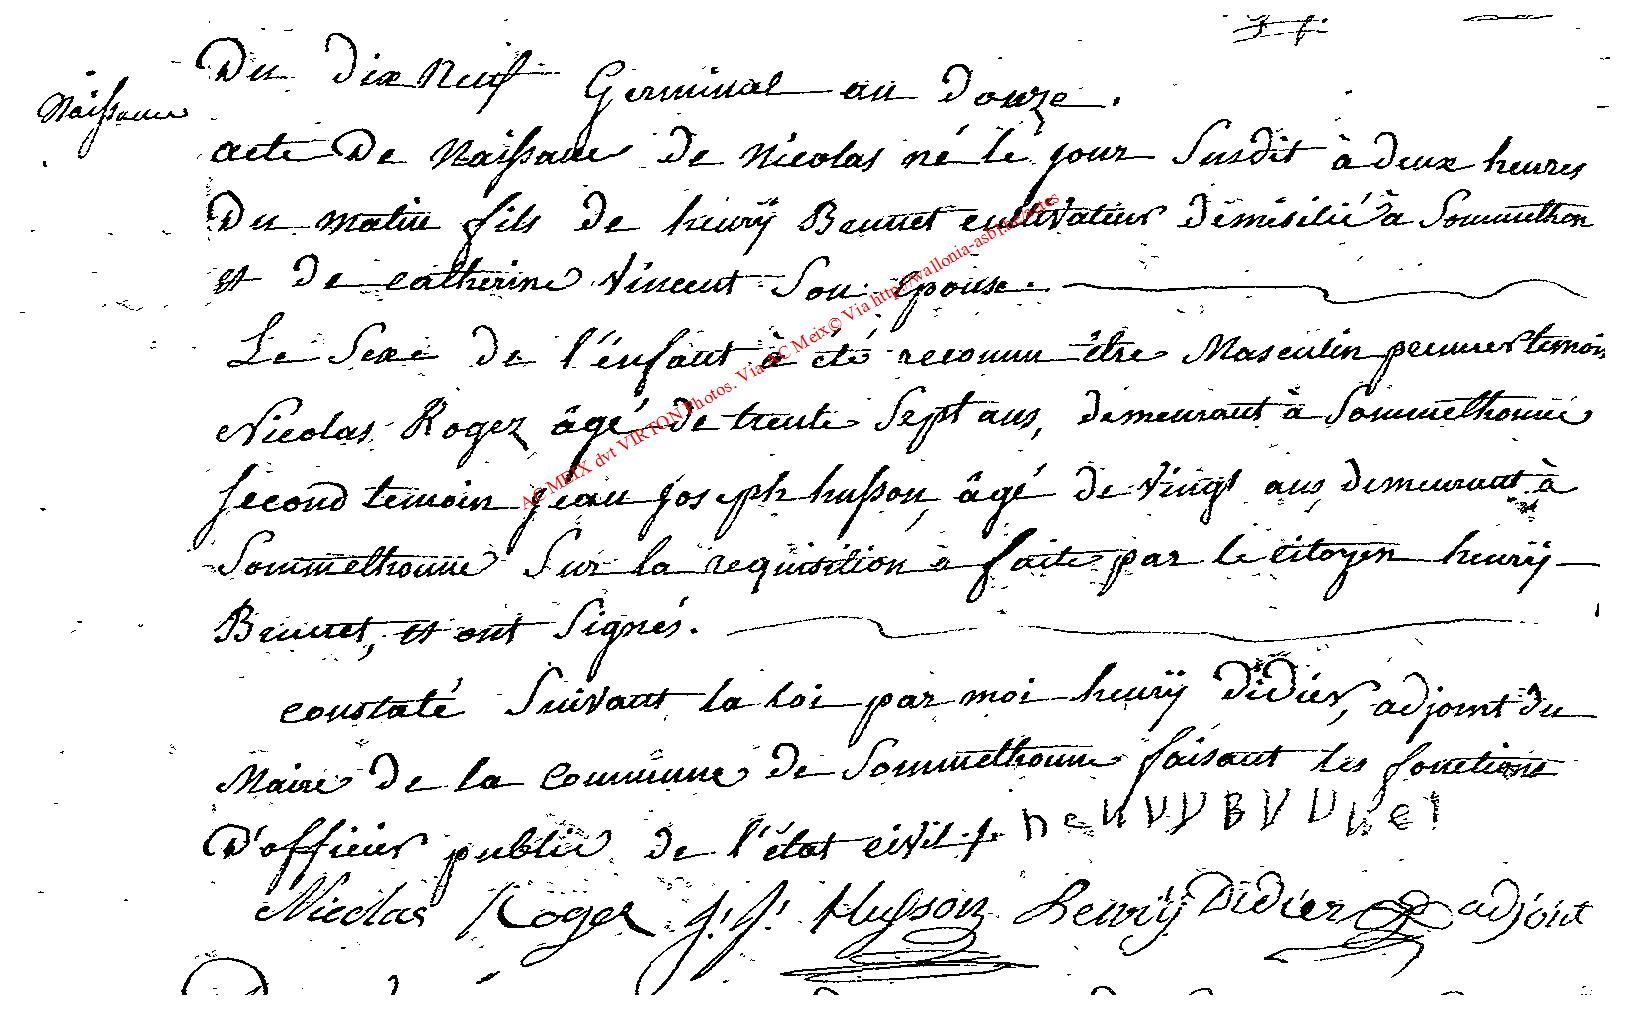 Du dix Neuf Germinal an douze.
Naissance
acte De Naissance de Nicolas né le jour Susdit à deux heures
Du matin fils de henrÿ Brunet cultivateur démisilié à Sommethon
et de catherine Vincent Son épouse.
Le Sexe de l'énfant à été reconnu être Masculin premier temoin
Nicolas Roger âgé de trente Sept ans, demeurant à Sommethonne
Second temoin jean joseph husson, âgé de vingt ans, demeurant à
Sommethonne Sur la requisition à faite par le citoyen henrÿ
Brunet, et ont Signés.
constaté Suivant la loi par moi henrÿ Didier, adjoint du
Maire de la Commune de Sommethonne faisant les fonctions
D'officier public de l'état civil.
henrÿ Brunet
Nicolas Roger J: J: Husson henrÿ Didier adjoint
AC MEIX dvt VIRTON Photos. Via AC Meix© Via